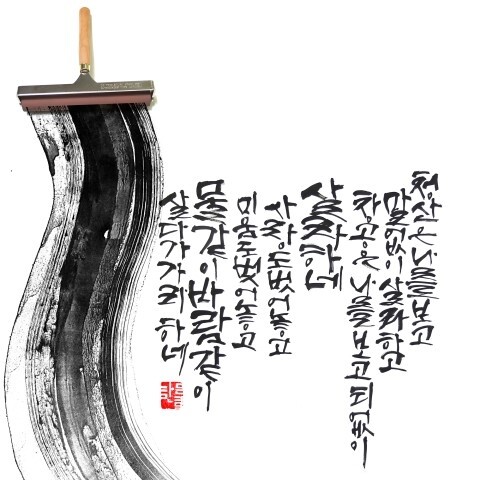 청산은 나를 보고
말없이 살라하고
창공은 나를 보고 티없이
살자하네
사랑도 벗어놓고
미움도 벗어놓고
물같이 바람같이
살다가 가라 하네